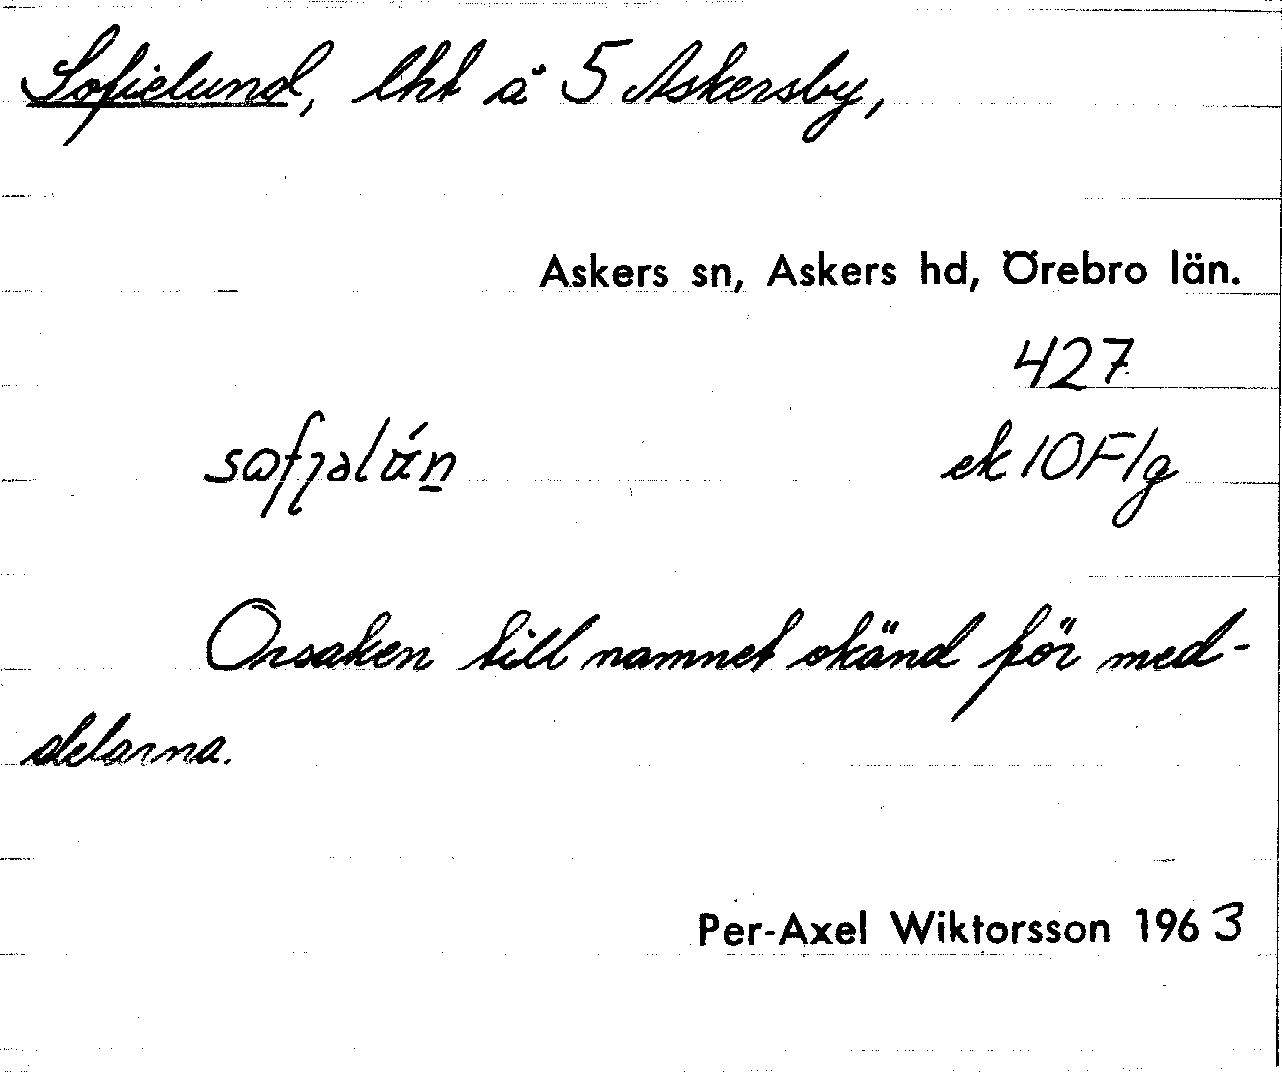 Sofielund, lht å 5 Askersby,
Askers sn, Askers hd, Örebro län.
427
ek 10F/g
Orsaken till namnet okänd för med-
delarna.
Per-Axel Wiktorsson 1963